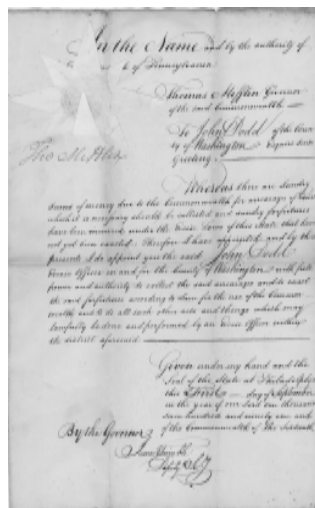 In the Name and by the authority of
of Pennsylvania
Thomas Mifflin Governor
of the said Commonwealth
To John Dodd of the Coun
ty of Washington Esquire
Greeting
Tho Mifflin
Whereas there are sundry
sums of money due to the Commonwealth for arrearages of Excise
which it is necessary should be collected and sundry forfeitures
have been incurred under the Excise Laws of this State that have
not yet been exacted: Therefore I have appointed and by these
presents I do appoint you the said John Dodd
Excise Officer in and for the County of Washington with full
power and authority to collect the said arrearages and to exact
the said forfeitures according to Law for the use of the Common
wealth and to do all such other acts and things which may
lawfully be done and performed by an Excise Officer within
the district aforesaid
Given under my hand and the
Seal of the State at Philadelphia
this day of September
in the year of our Lord one thousand
seven hundred and ninety one and
of the Commonwealth of the Sixteenth
By the Governor
Deputy